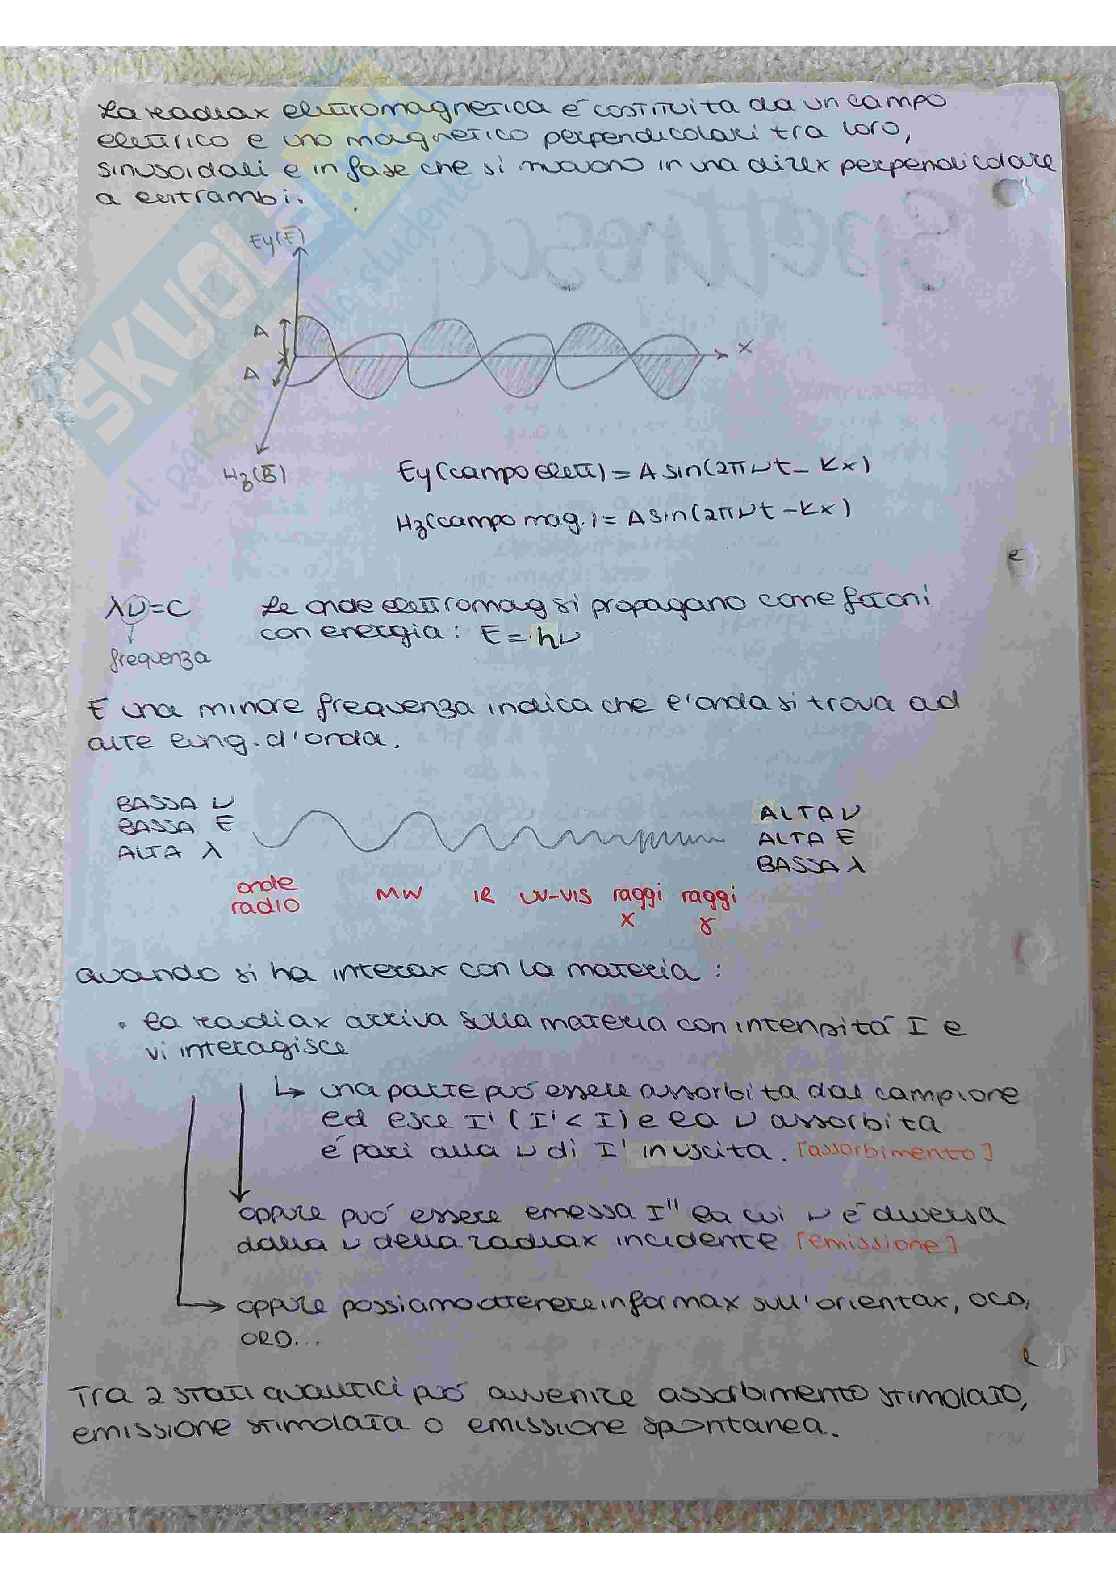 La radiax elettromagnetica é costituita da un campo
elettrico e uno magnetico perpendicolari tra loro,
sinusoidali e in fase che si muovono in una direx perpendicolare
a entrambi.
Ey(E)
A
A
x
Hz(B)
Ey(campo elett) = A sin(2πνt - Kx)
Hz(campo mag.) = A sin(2πνt - Kx)
λν=C
frequenza
Le onde elettromag si propagano come fotoni
con energia: E = hν
E una minore frequenza indica che l'onda si trova ad
alte lung. d'onda.
BASSA ν
BASSA E
ALTA λ
ALTA ν
ALTA E
BASSA λ
onde
radio
MW
IR
UV-VIS
raggi
x
raggi
γ
Quando si ha interax con la materia:
• la radiax arriva sulla materia con intensitá I e
vi interagisce
↳ una parte puó essere assorbita dal campione
ed esce I' (I' < I) e la ν assorbita
é pari alla ν di I' in uscita. [assorbimento]
oppure puó essere emessa I'' la cui ν é diversa
dalla ν della radiax incidente [emissione]
oppure possiamo ottenere informax sull'orientax, OCD,
ORD...
Tra 2 stati quantici puó avvenire assorbimento stimolato,
emissione stimolata o emissione spontanea.
SKUOLA
il paradiso dello studente